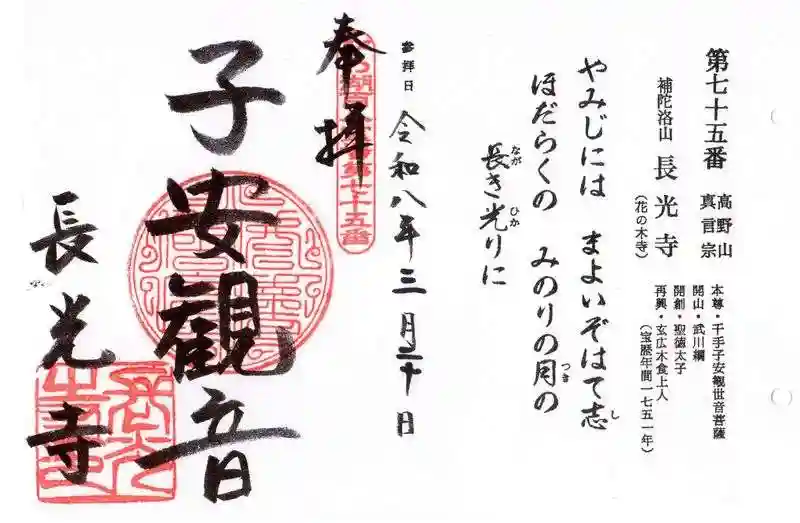 第七十五番
高野山
真言宗
補陀洛山 長光寺
(花の木寺)
本尊・千手子安観世音菩薩
開山・武川綱
開創・聖徳太子
再興・玄広木食上人
(宝歴年間一七五一年)
やみじには まよいぞはて志
ほだらくの みのりの月の
長き光りに
し
つき
なが
ひか
参拝日 令和八年三月二十日
奉拝
第七十五番
子安観音
長光寺